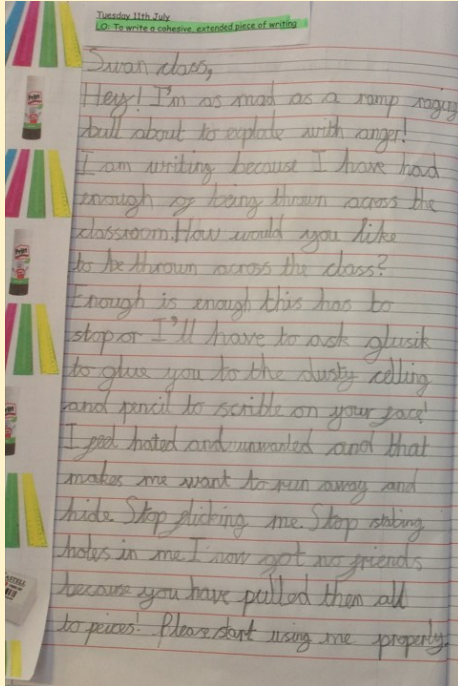 Tuesday 11th July
LO: To write a cohesive, extended piece of writing
Swan class,
Hey! I'm as mad as a ramp raging
bull about to explode with anger!
I am writing because I have had
enough of being thrown across the
classroom. How would you like
to be thrown across the class?
Enough is enough this has to
stop or I'll have to ask glusik
to glue you to the dusty celling
and pencil to scrible on your face!
I feel hated and unwanted and that
makes me want to run away and
hide. Stop flicking me. Stop stabing
holes in me. I now got no friends
because you have pulled them all
to peices! Please start using me properly.
Pritt
Pritt